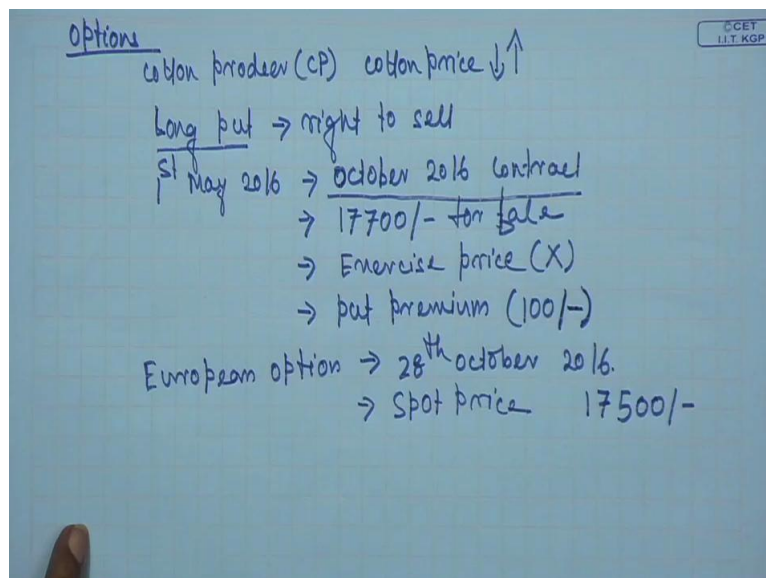 Options
©CET
I.I.T. KGP
cotton prodeer (CP) cotton price ↓↑
Long put → right to sell
1st May 2016 → October 2016 contract
→ 17700/- for sale
→ Exercise price (X)
→ put premium (100/-)
European option → 28th october 2016.
→ spot price 17500/-